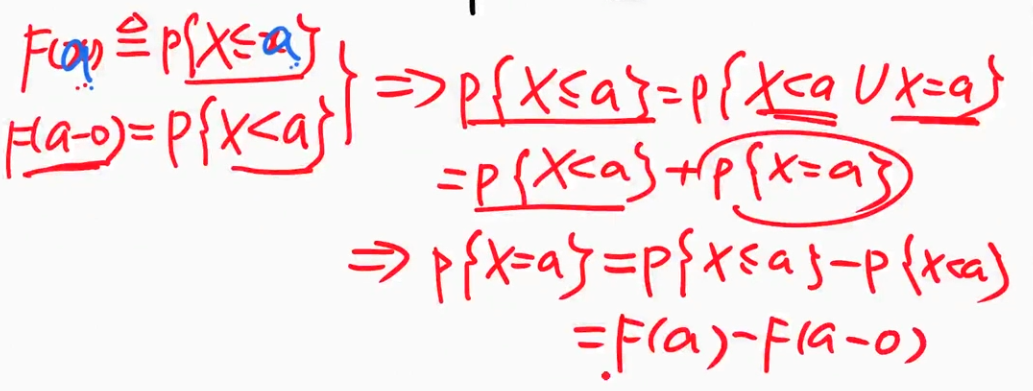 F(a) ≜ P{X≤a}
F(a-0) = P{X<a}
} => P{X≤a} = P{X<a ∪ X=a}
= P{X<a} + P{X=a}
=> P{X=a} = P{X≤a} - P{X<a}
= F(a) - F(a-0)